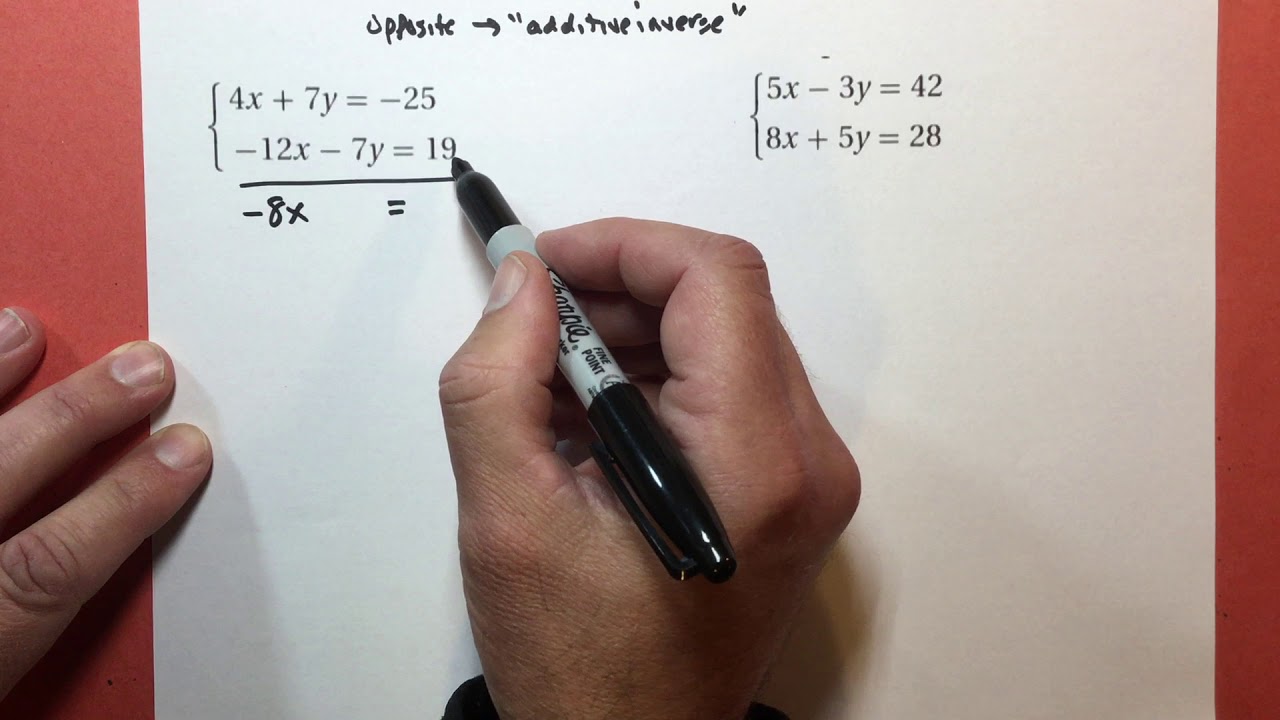 opposite → "additive inverse"
4x + 7y = −25
−12x − 7y = 19
−8x =
5x − 3y = 42
8x + 5y = 28
Sharpie®
FINE
POINT